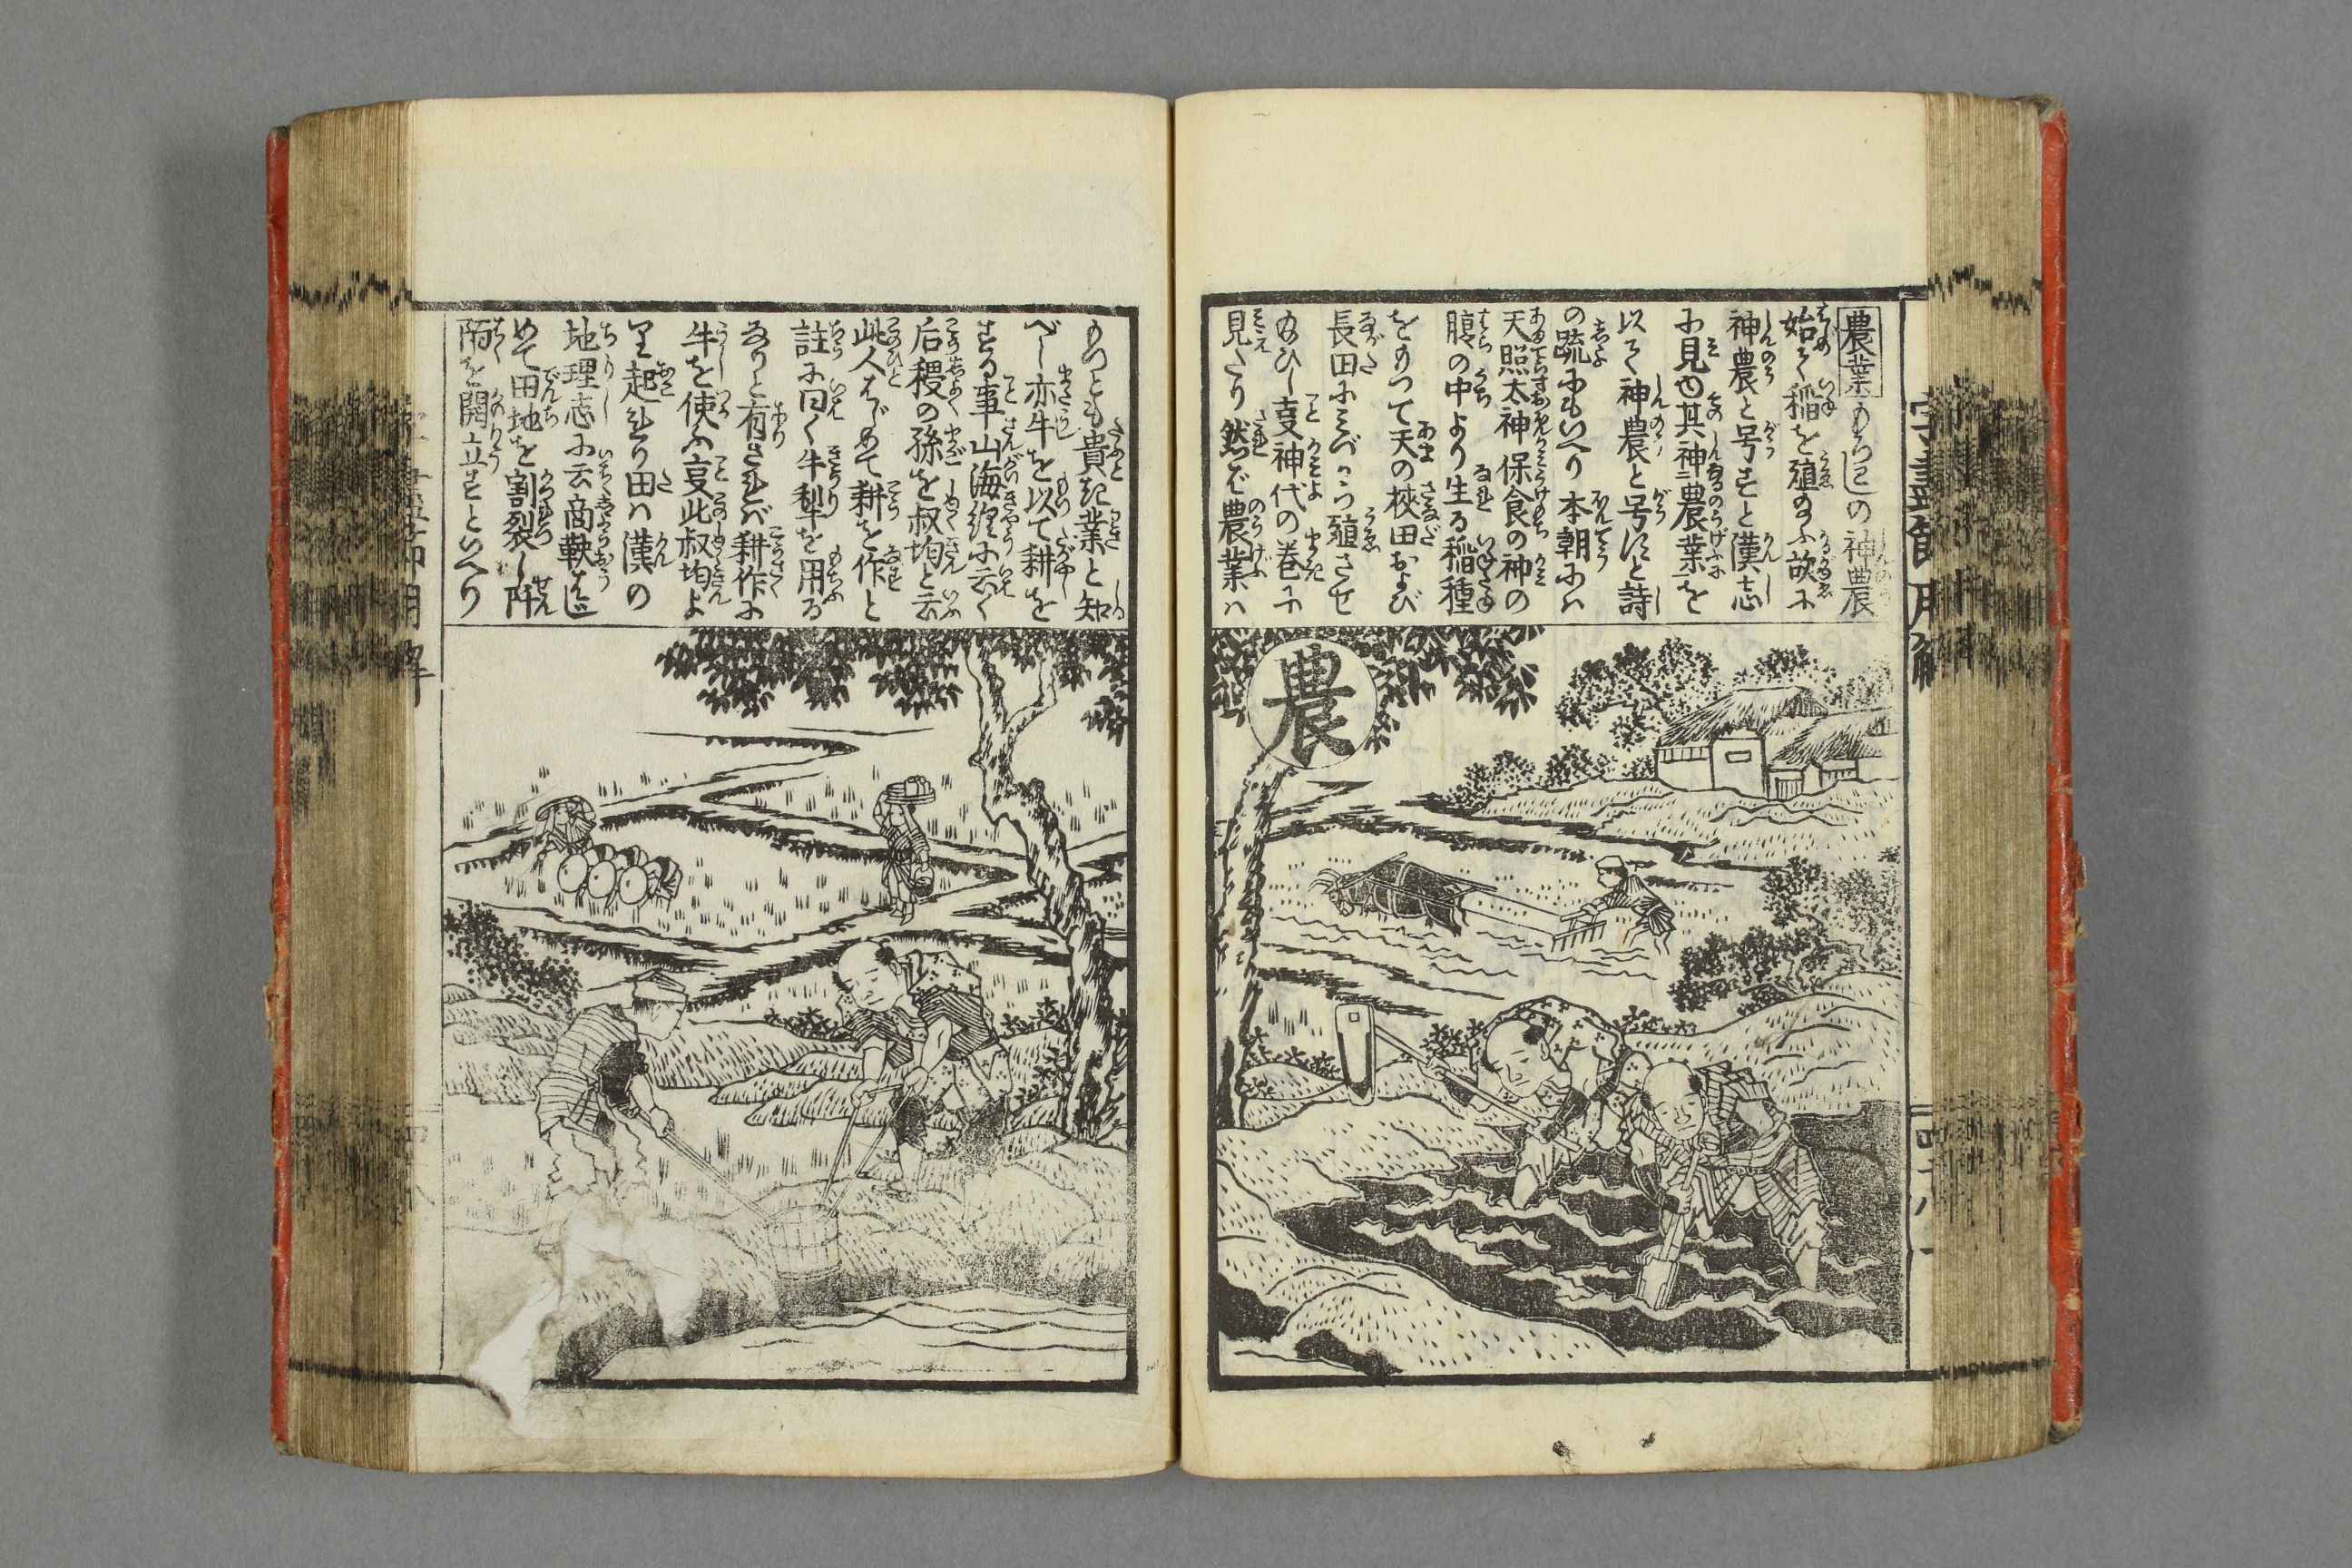 農業もろこしの神農
始て稲を殖のふ故に
神農と号すと漢志
に見ゆ其神農業を
以て神農と号にと詩
の疏にもいへり本朝にハ
天照太神保食の神の
腹の中より生る稲種
をもつて天の狹田および
長田に
殖させ
神代の巻に
見たり然ば農業ハ
農
もつとも貴き業と知
べし亦牛を以て耕を
する事山海経に云く
后稷の孫を叔均と云
此人はじめて耕を作と
註に曰く牛犁を用る
なりと有されバ耕作に
牛を使ふ叓此叔均よ
り起れり田ハ漢の
地理志に云商鞅はじ
めて田地を割裂し阡
陌を開立すといへり